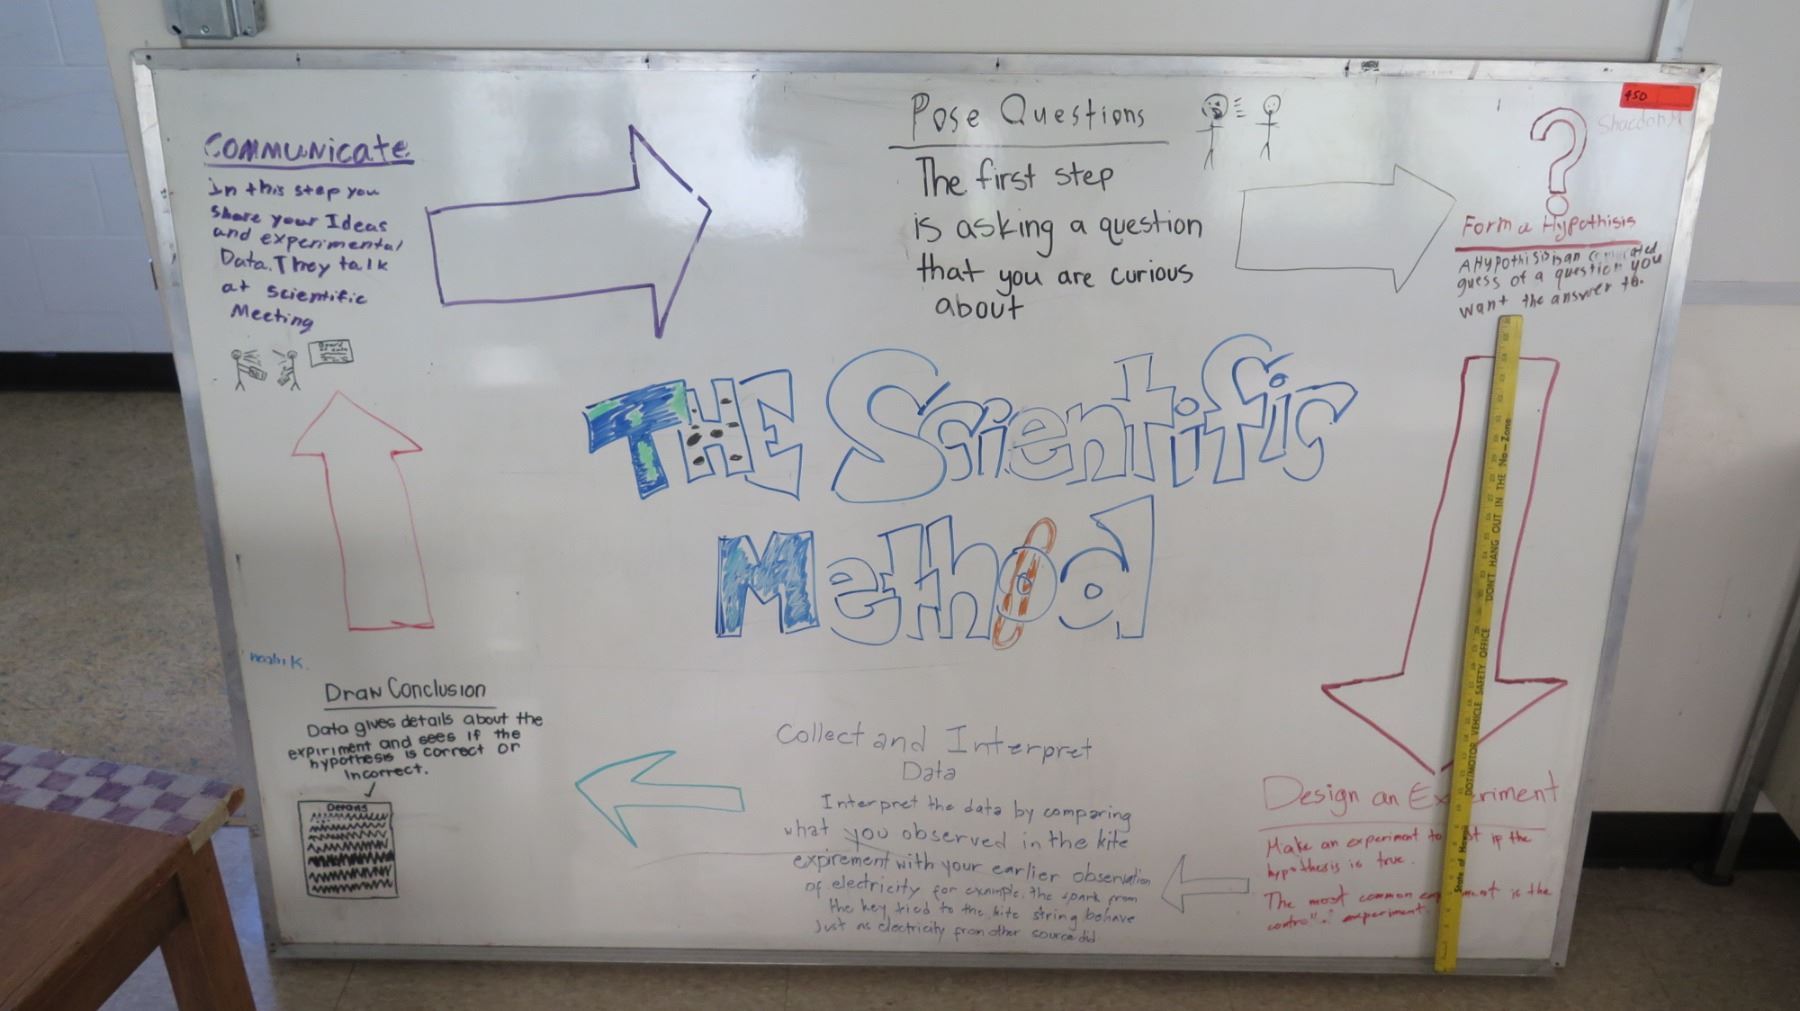 COMMUNICATE
In this step you
share your Ideas
and experimental
Data. They talk
at scientific
Meeting
Pose Questions
The first step
is asking a question
that you are curious
about
450
Form a Hypothisis
A Hypothisis is an
guess of a question you
want the answer to.
THE Scientific
Method
DON'T HANG OUT IN THE No-Zone
DOT/MOTOR VEHICLE SAFETY OFFICE
State of
Design an Ex eriment
Make an experiment to st if the
hypothesis is true.
The most common exp ment is the
experiment.
Collect and Interpret
Data
Interpret the data by comparing
what you observed in the kite
expirement with your earlier observation
of electricity for example. the spark from
the key tied to the kite string behave
Just as electricity from other source did
noah K.
Draw Conclusion
Data gives details about the
expiriment and sees if the
hypothesis is correct or
Incorrect.
Details